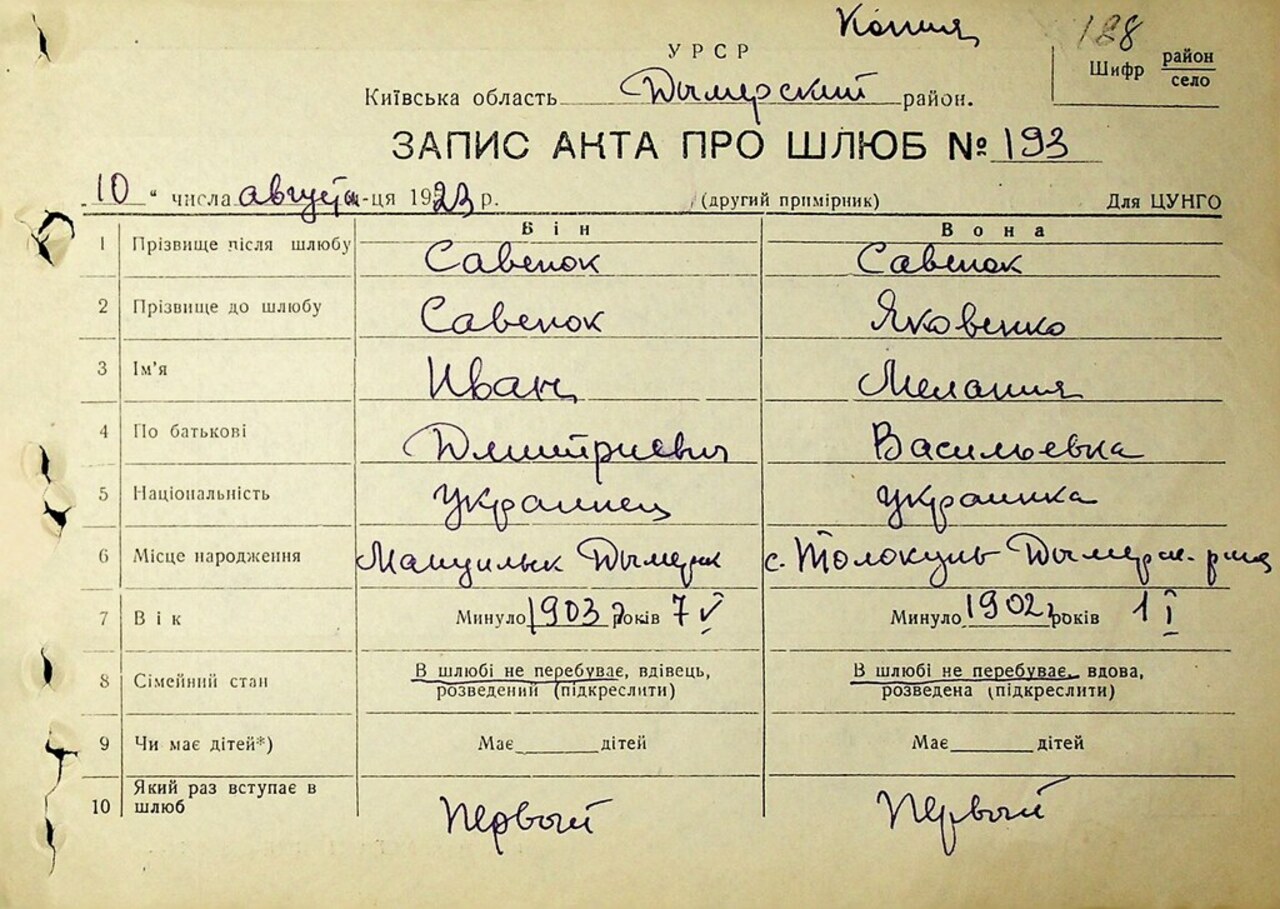 Копия
188
УРСР
Шифр район село
Київська область Дымерский район.
ЗАПИС АКТА ПРО ШЛЮБ № 193
10 " числа августа м-ця 1923 р. (другий примірник) Для ЦУНГО
Він Вона
1 Прізвище після шлюбу Савенок Савенок
2 Прізвище до шлюбу Савенок Яковенко
3 Ім'я Иван Мелания
4 По батькові Дмитриевич Васильевна
5 Національність Украинец украинка
6 Місце народження Дымерск с. Толокунь Дымерск. р-на
7 Вік Минуло 1903 г років 7 V Минуло 1902 г років 1 I
8 Сімейний стан В шлюбі не перебуває, вдівець, розведений (підкреслити) В шлюбі не перебуває, вдова, розведена (підкреслити)
9 Чи має дітей*) Має дітей Має дітей
10 Який раз вступає в шлюб Первый Первый